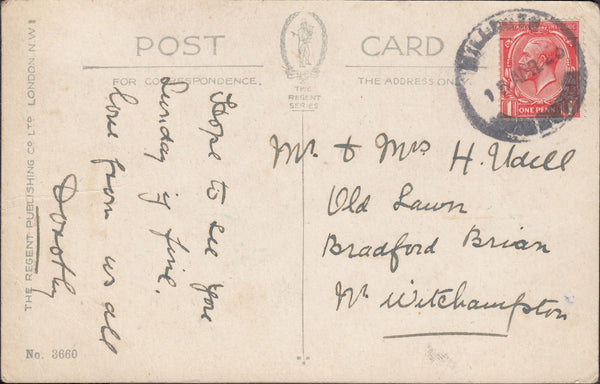 POST CARD
FOR CORRESPONDENCE.
THE ADDRESS ON
THE
REGENT
SERIES
Hope to see you
Sunday if fine.
love from us all
Dorothy
Mr. & Mrs H. Udell
Old Lawn
Bradford Brian
Nr. Witchampton
ONE PENNY
THE REGENT PUBLISHING CO LTD LONDON. N.W.1
No. 3660